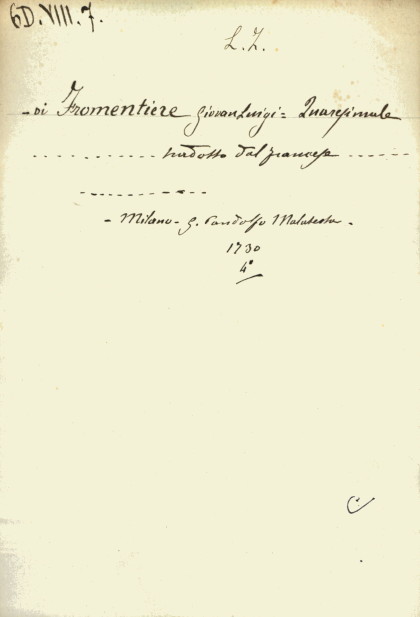 6D.VIII.7.
L. Z.
- Di Fromentiere Giovan Luigi = Quaresimale
.......... tradotto dal francese ......
- Milano - G. Pandolfo Malatesta -
1730
4°